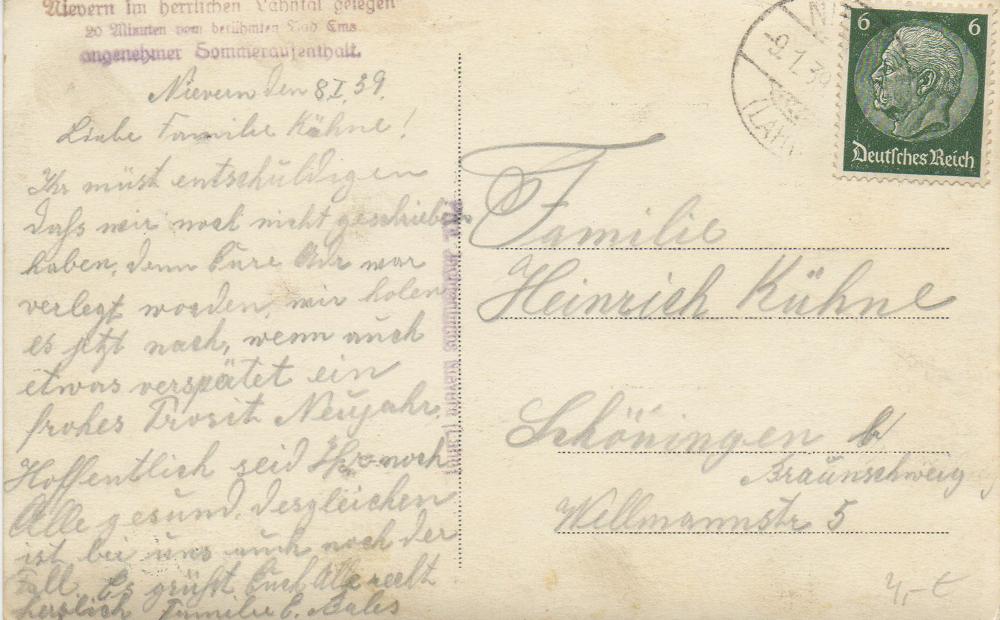 Nievern im herrlichen Lahntal gelegen
20 Minuten vom berühmten Bad Ems
angenehmer Sommeraufenthalt.
Nievern den 8.I.39.
Liebe Familie Kühne!
Ihr müst entschuldigen
daß wir noch nicht geschrieben
haben, denn Eure Adr war
verlegt worden, wir holen
es jetzt nach, wenn auch
etwas verspätet ein
frohes Prosit Neujahr.
Hoffentlich seid Ihr noch
Alle gesund, desgleichen
ist bei uns auch noch der
Fall. Es grüßt Euch Alle recht
herzlich Familie
NIE
-9.1.39
(LAHN
6 6
Deutsches Reich
Familie
Heinrich Kühne
Schöningen b/
Braunschweig
Wellmannstr 5
4,- €